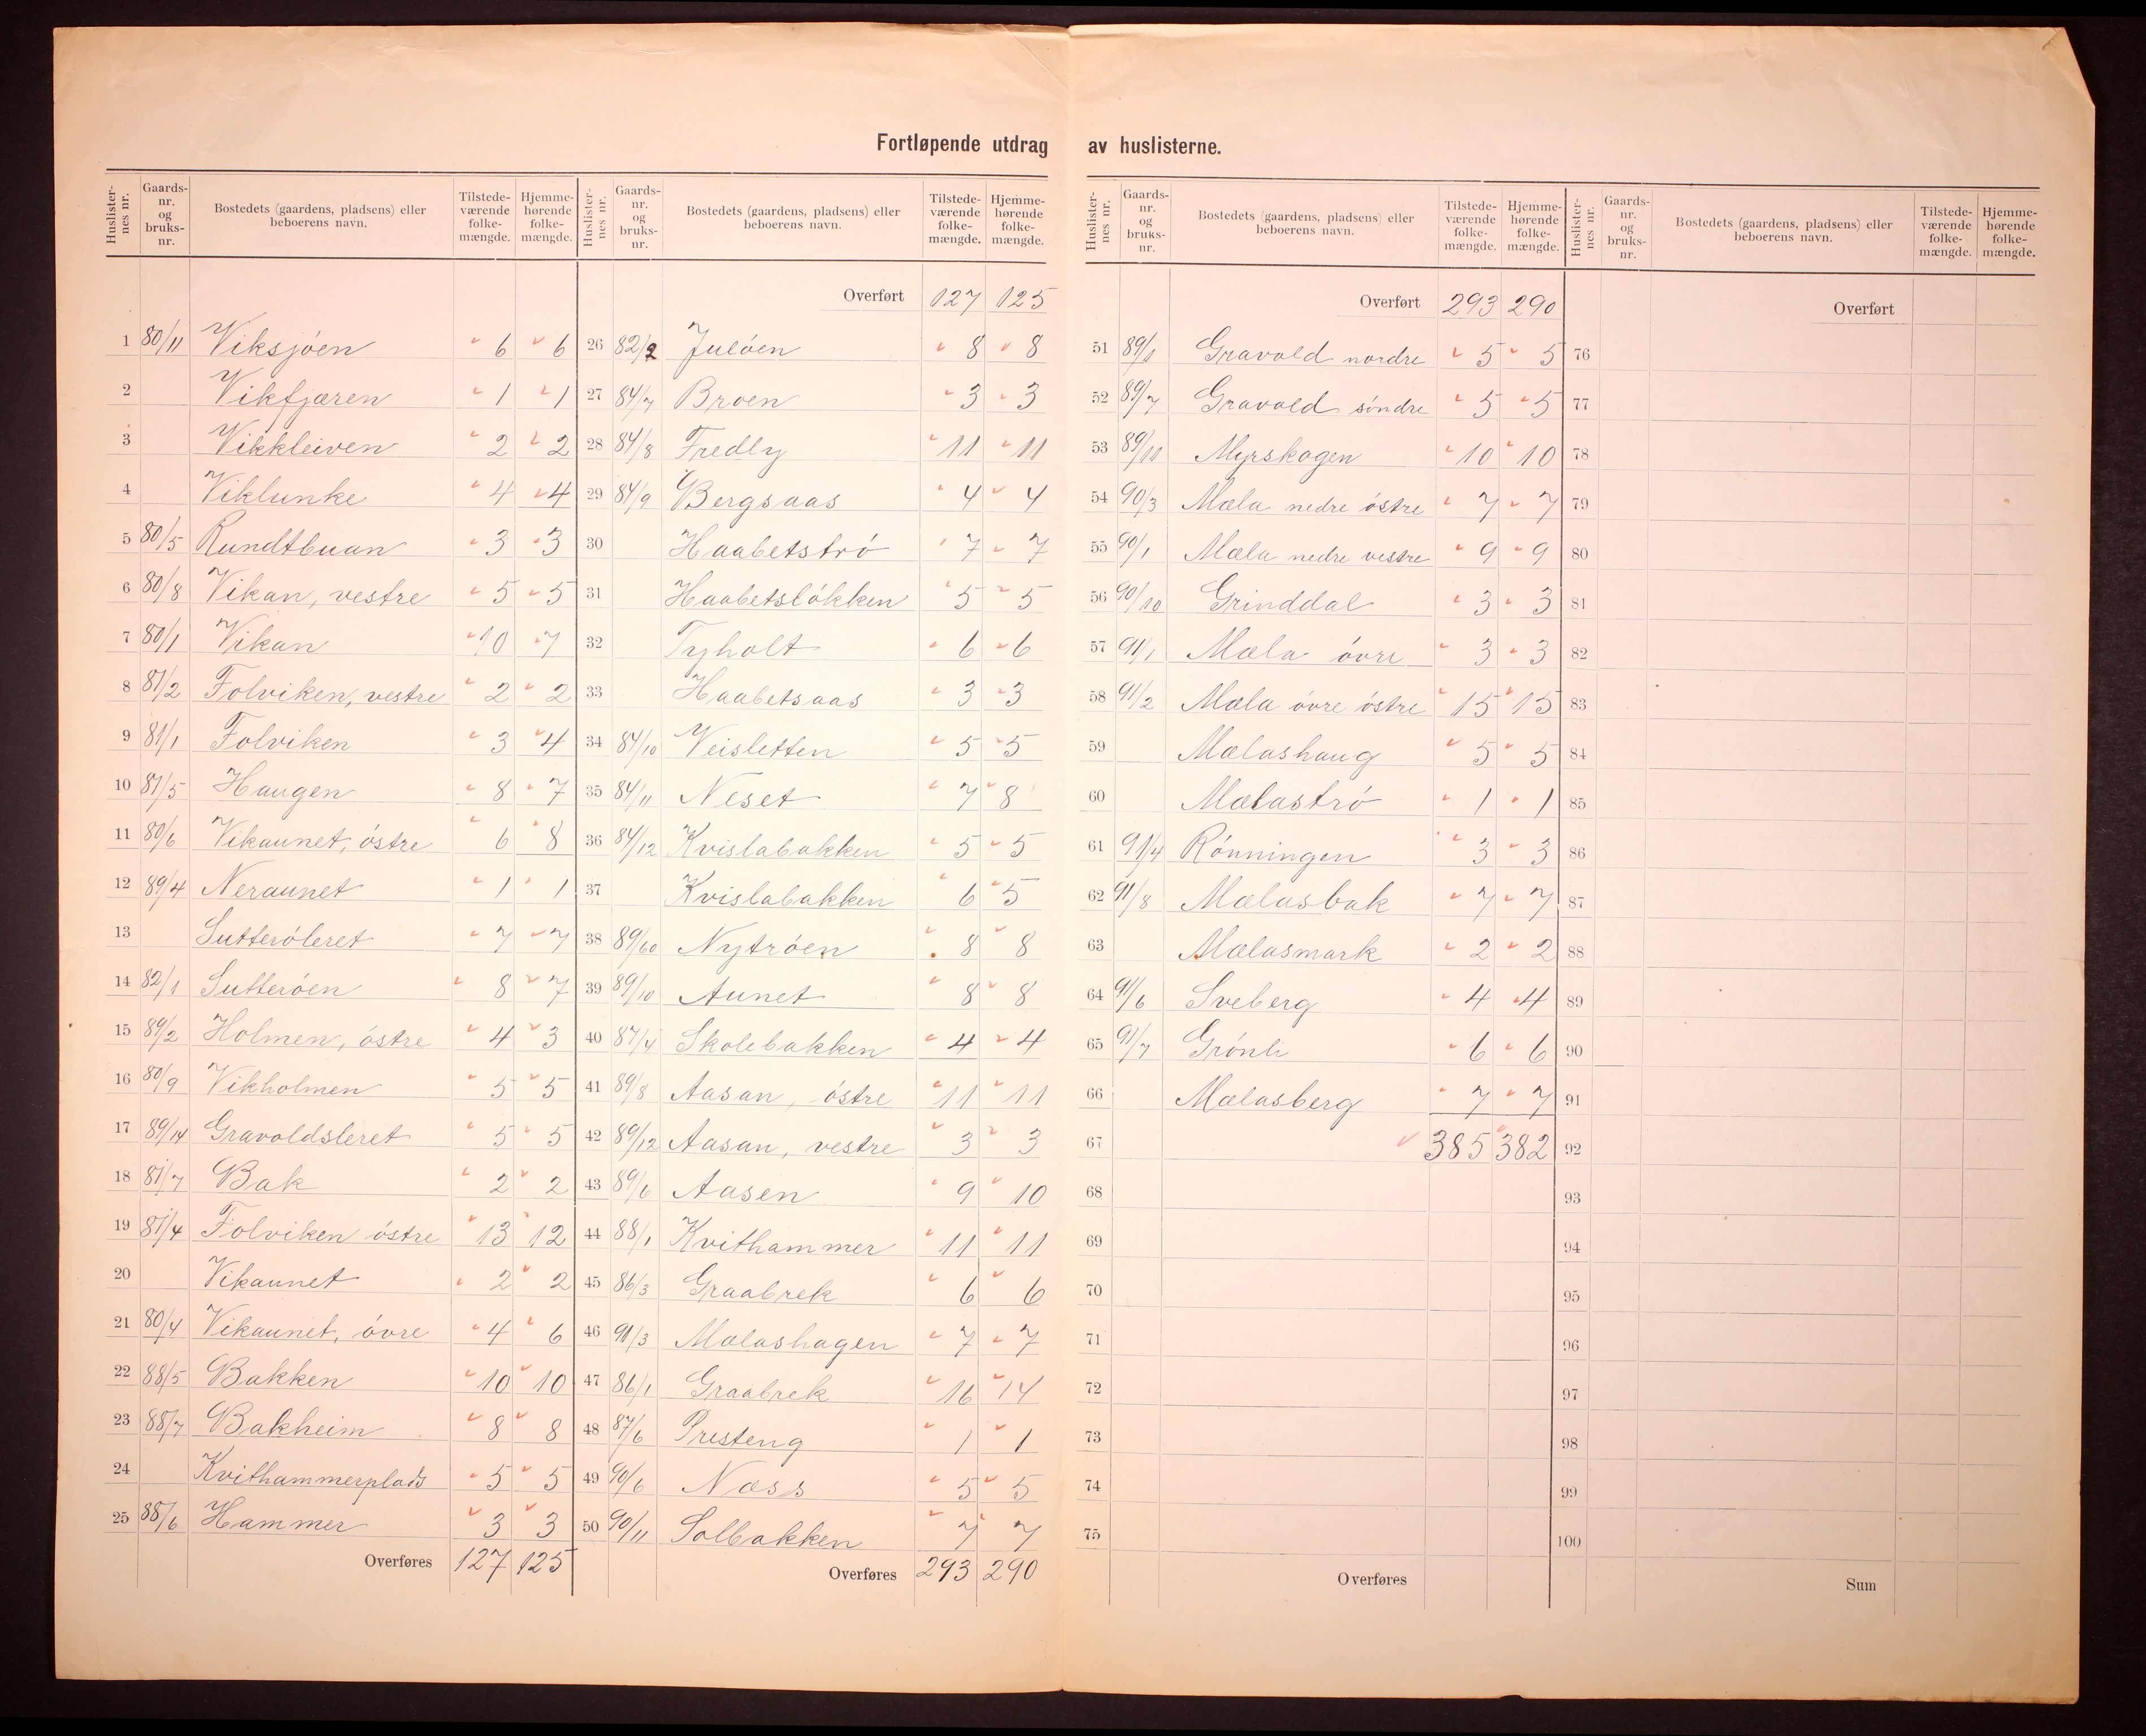 Fortløpende utdrag av huslisterne.
Huslisternes nr. | Gaards-nr. og bruks-nr. | Bostedets (gaardens, pladsens) eller beboerens navn. | Tilstede-værende folke-mængde. | Hjemme-hørende folke-mængde.
1 80/11 Viksjöen 6 6
2 Vikfjæren 1 1
3 Vikkleiven 2 2
4 Viklunke 4 4
5 80/5 Rundtbuan 3 3
6 80/8 Vikan, vestre 5 5
7 80/1 Vikan 10 7
8 81/2 Folviken, vestre 2 2
9 81/1 Folviken 3 4
10 81/5 Haugen 8 7
11 80/6 Vikaunet, östre 6 8
12 89/4 Neraunet 1 1
13 Sutteröleret 7 7
14 82/1 Sutteröen 8 7
15 89/2 Holmen, östre 4 3
16 80/9 Vikholmen 5 5
17 89/14 Gravoldsleret 5 5
18 81/7 Bak 2 2
19 81/4 Folviken östre 13 12
20 Vikaunet 2 2
21 80/4 Vikaunet, övre 4 6
22 88/5 Bakken 10 10
23 88/7 Bakheim 8 8
24 Kvithammerplads 5 5
25 88/6 Hammer 3 3
Overføres 127 125
Huslisternes nr. | Gaards-nr. og bruks-nr. | Bostedets (gaardens, pladsens) eller beboerens navn. | Tilstede-værende folke-mængde. | Hjemme-hørende folke-mængde.
Overført 127 125
26 82/2 Julöen 8 8
27 84/7 Broen 3 3
28 84/8 Fredly 11 11
29 84/9 Bergsaas 4 4
30 Haabetströ 7 7
31 Haabetslökken 5 5
32 Tyholt 6 6
33 Haabetsaas 3 3
34 84/10 Veisletten 5 5
35 84/11 Neset 7 8
36 84/12 Kvislabakken 5 5
37 Kvislabakken 6 5
38 Nytröen 8 8
39 89/10 Aunet 8 8
40 87/4 Skolebakken 4 4
41 89/8 Aasan, östre 11 11
42 89/12 Aasan, vestre 3 3
43 89/6 Aasen 9 10
44 88/1 Kvithammer 11 11
45 86/3 Graabrek 6 6
46 91/3 Mælashagen 7 7
47 86/1 Graabrek 16 14
48 87/6 Presteng 1 1
49 90/6 Næss 5 5
50 90/11 Solbakken 7 7
Overføres 293 290
Huslisternes nr. | Gaards-nr. og bruks-nr. | Bostedets (gaardens, pladsens) eller beboerens navn. | Tilstede-værende folke-mængde. | Hjemme-hørende folke-mængde.
Overført 293 290
51 89/1 Gravold nordre 5 5
52 89/7 Gravold söndre 5 5
53 89/11 Myrskogen 10 10
54 90/3 Mæla nedre östre 7 7
55 90/1 Mæla nedre vestre 9 9
56 90/10 Grinddal 3 3
57 91/1 Mæla övre 3 3
58 91/2 Mæla övre östre 15 15
59 Mælashaug 5 5
60 Mælaströ 1 1
61 91/4 Rönningen 3 3
62 91/8 Mælasbak 7 7
63 Mælasmark 2 2
64 91/6 Sveberg 4 4
65 91/7 Grönli 6 6
66 Mælasberg 7 7
67 385 382
68
69
70
71
72
73
74
75
Overføres
Huslisternes nr. | Gaards-nr. og bruks-nr. | Bostedets (gaardens, pladsens) eller beboerens navn. | Tilstede-værende folke-mængde. | Hjemme-hørende folke-mængde.
Overført
76
77
78
79
80
81
82
83
84
85
86
87
88
89
90
91
92
93
94
95
96
97
98
99
100
Sum